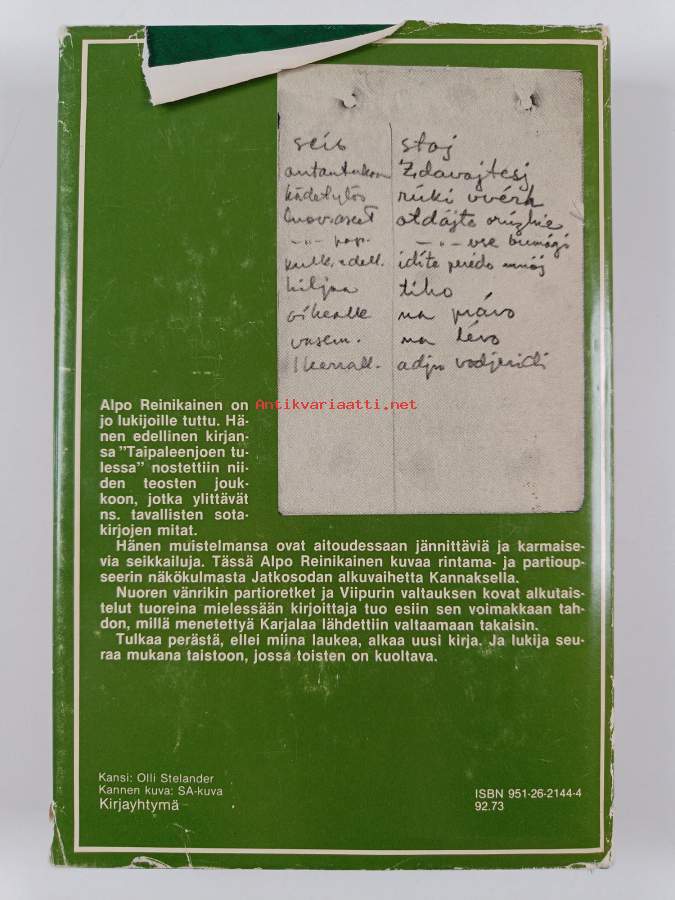 seis staj
antautukaa Zdavajtesj
kädetylös rúki vvérh
luov.aseet otdájte orúzhie
-"- pap. -"- vse bumági
kulk. edell. idíte perédo mnój
hiljaa tiho
oikealle na právo
vasem. na lévo
1 kerrall.
Antikvariaatti.net
Alpo Reinikainen on
jo lukijoille tuttu. Hä-
nen edellinen kirjan-
sa "Taipaleenjoen tu-
lessa" nostettiin nii-
den teosten jouk-
koon, jotka ylittävät
ns. tavallisten sota-
kirjojen mitat.
Hänen muistelmansa ovat aitoudessaan jännittäviä ja karmaise-
via seikkailuja. Tässä Alpo Reinikainen kuvaa rintama- ja partioup-
seerin näkökulmasta Jatkosodan alkuvaihetta Kannaksella.
Nuoren vänrikin partioretket ja Viipurin valtauksen kovat alkutais-
telut tuoreina mielessään kirjoittaja tuo esiin sen voimakkaan tah-
don, millä menetettyä Karjalaa lähdettiin valtaamaan takaisin.
Tulkaa perästä, ellei miina laukea, alkaa uusi kirja. Ja lukija seu-
raa mukana taistoon, jossa toisten on kuoltava.
Kansi: Olli Stelander
Kannen kuva: SA-kuva
Kirjayhtymä
ISBN 951-26-2144-4
92.73